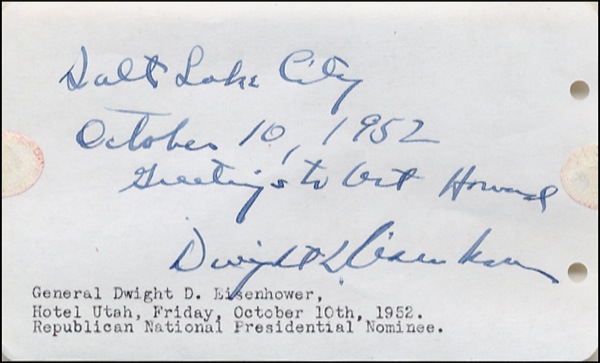 Salt Lake City
October 10, 1952
Greetings to Art Howard
Dwight D Eisenhower
General Dwight D. Eisenhower,
Hotel Utah, Friday, October 10th, 1952.
Republican National Presidential Nominee.